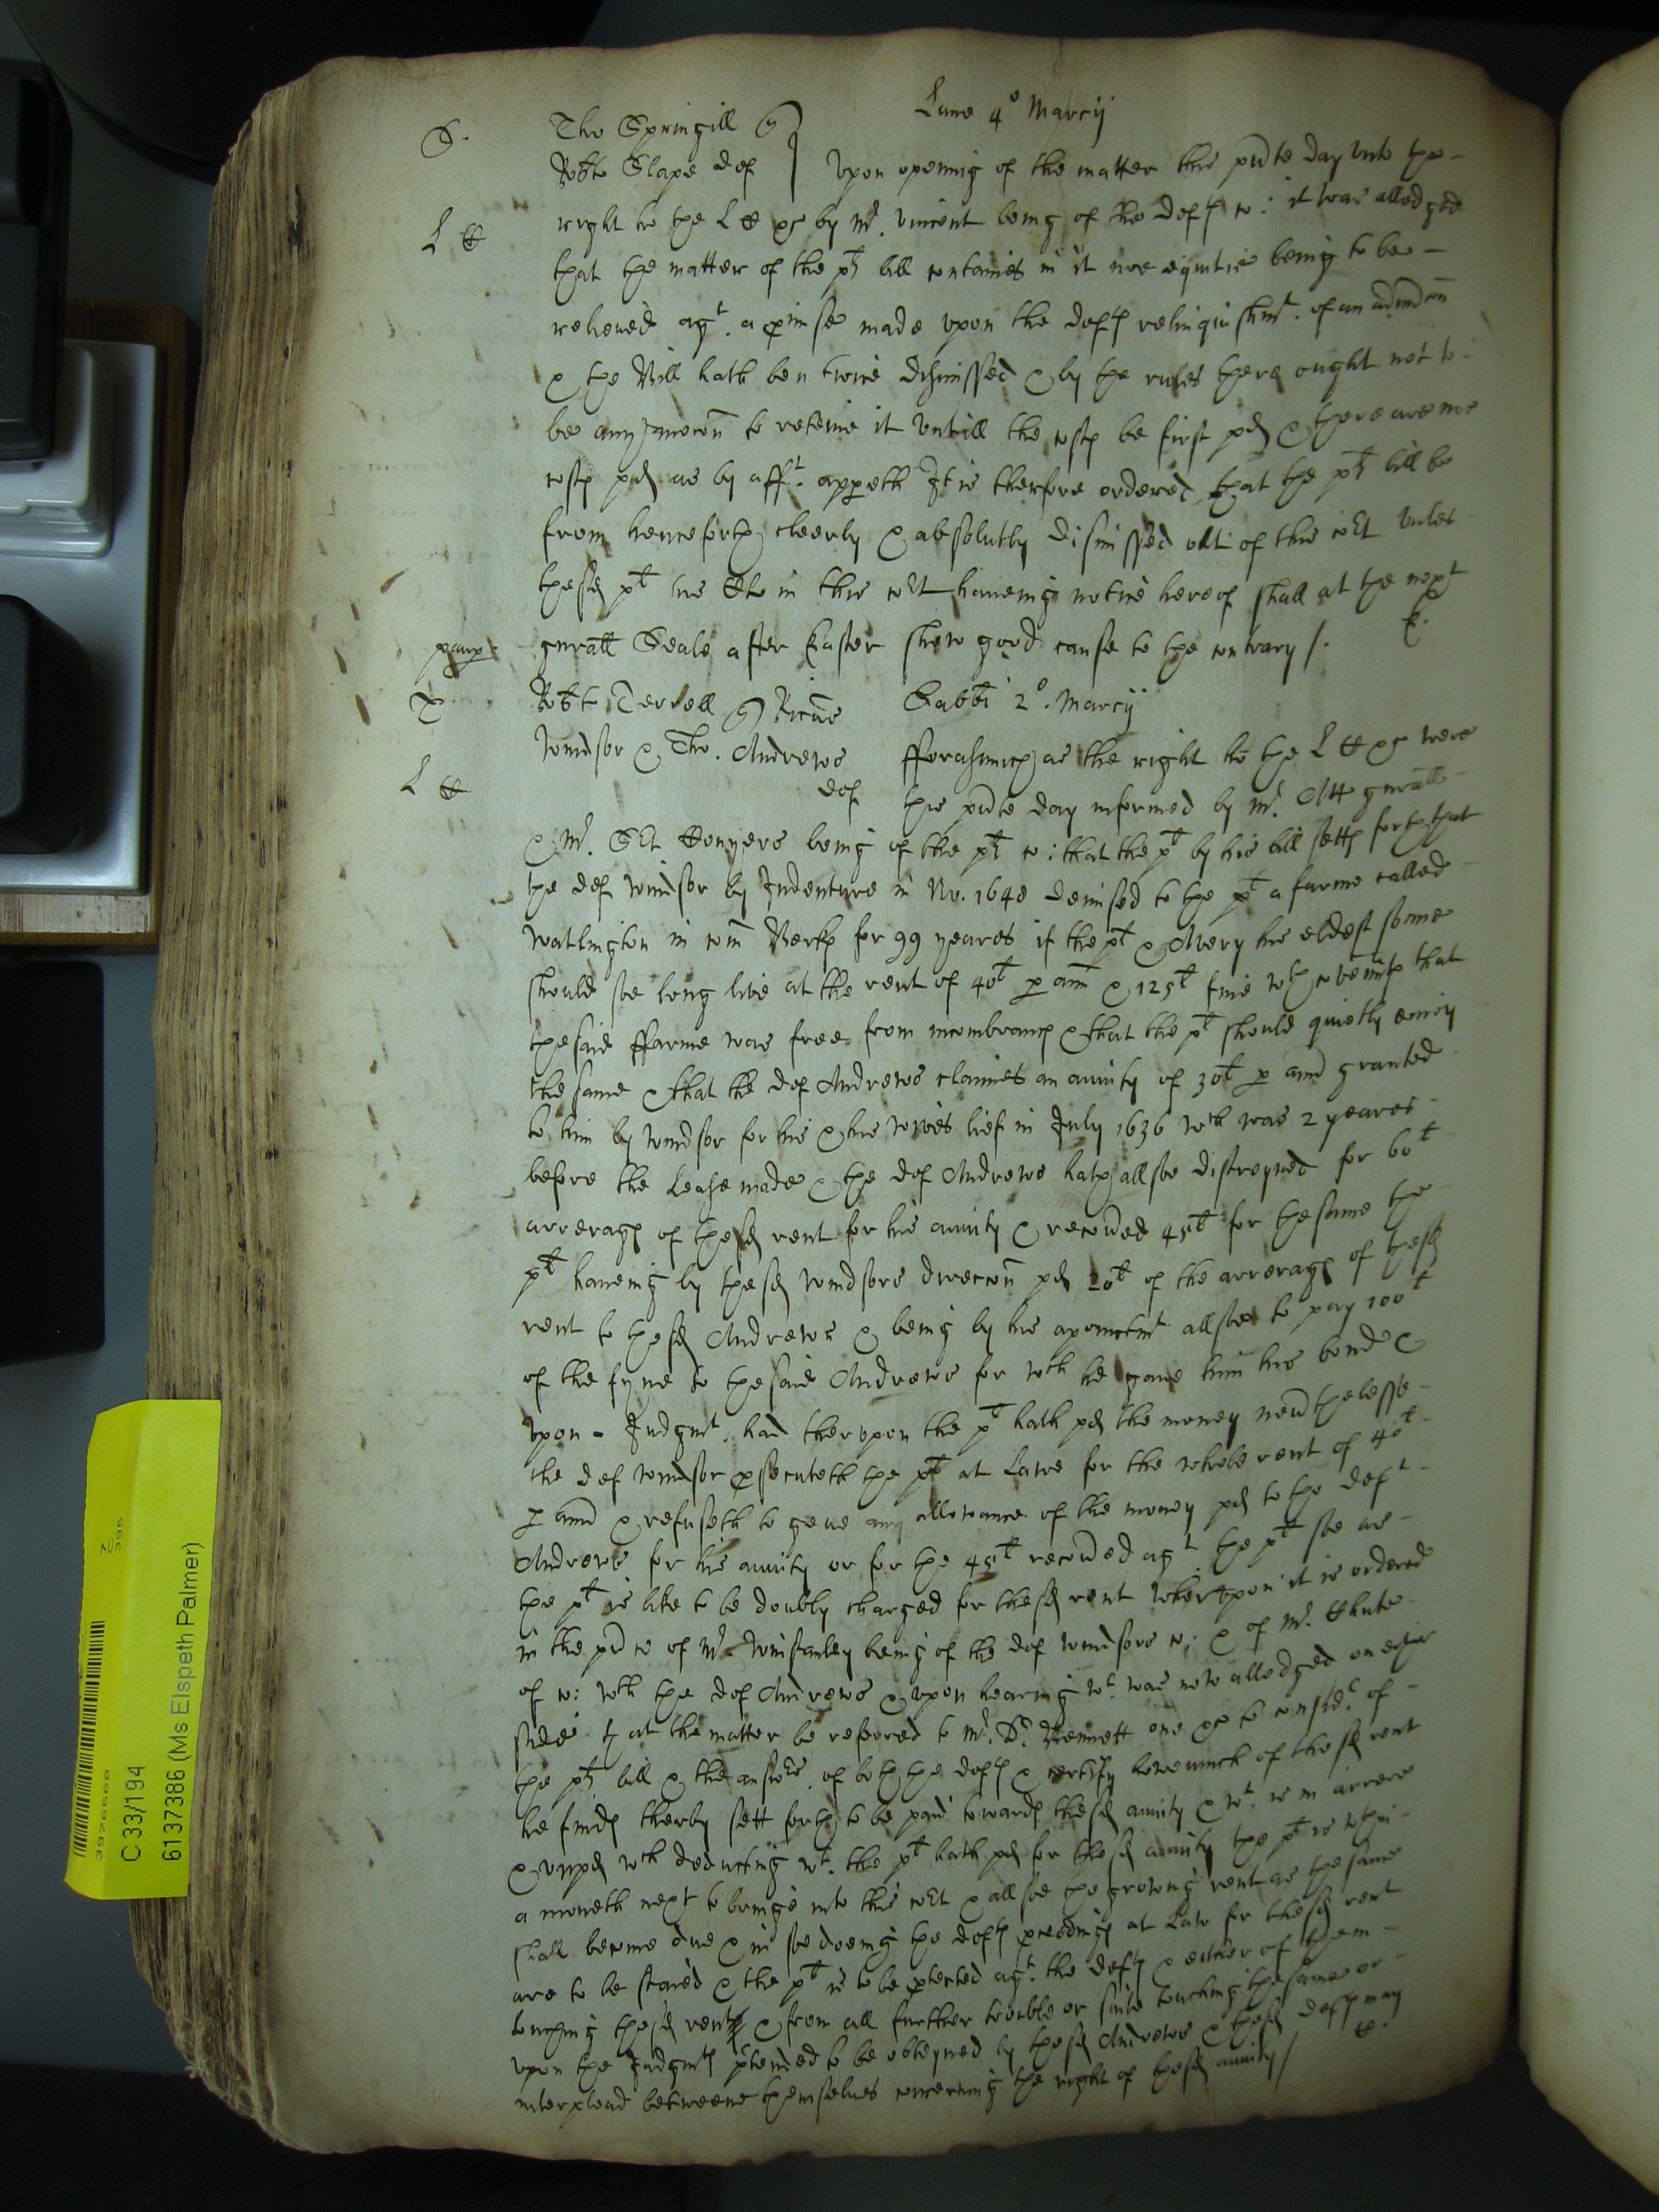 Lune 4° Marcij
S. Tho Springill q
Robte Slape def } Upon opening of the matter this pnte day unto the
L C right ho the L C &c by Mr. Vincent being of the defts co: it was alledged
that the matter of the pts bill conteines in it noe equitie being to be
releived agt. a pmise made upon the defts relinquishmt. of an admcon
& the Bill hath ben twice dismissed & by the rules there ought not to
be any mocon to reteine it untill the costs be first pd & there are noe
costs pd as by afft. appeth It is therfore ordered that the pts bill be
from henceforth cleerly & absolutly dismissed out of this cort unles
the sd pt his Clo in this cort haveing notice hereof shall at the next
gnrall Seale after Easter shew good cause to the contrary /. E.
paup
T Robt Terrell q Ricus Sabbti 2° Marcij
Windsor & Tho. Andrewes fforasmuch as the right ho the L C &c were
L C def this pnte day informed by Mr. Att gnrall
& Mr. Sct Conyers being of the pts co: that the pt by his bill setts forth that
the def Windsor by Indenture in No. 1640 demised to the pt a farme called
Watlington in com Berks for 99 yeares if the pt & Avery his eldest sonne
should soe long live at the rent of 40l p ann & 125l fine wth covennts that
the said ffarme was free from incombrance & that the pt should quietly enioy
the same & that the def Andrewes claimes an anuity of 30l p annd granted
to him by Windsor for his & his wives lief in July 1636 wch was 2 yeares
before the Lease made & the def Andrewes hath allsoe distreyned for 60l
arrerages of the sd rent for his anuity & recoved 45l for the same the
pt haveing by the sd Windsors direccon pd 20l of the arrerages of the sd
rent to the sd Andrewes & being by his apointmt allsoe to pay 100l
of the fyne to the said Andrewes for wch he gave him his bond &
upon Judgmt. had therupon the pt hath pd the money nevthelesse
the def Windsor psecuteth the pt at Lawe for the whole rent of 40l
p annd & refuseth to geve any allowance of the money pd to the deft
Andrewes for his anuity or for the 45l recoved agt the pt soe as
the pt is like to be doubly charged for the sd rent Wherupon it is ordered
in the pnce of Mr Winstanley being of the def Windsors co: & of Mr. Chute
of co: wth the def Andrewes & upon hearing wt. was now alledged on eyther
side that the matter be referred to Mr. Dr. Bennett one &c to consider of
the pts bill & the answes of both the defts & certify how much of the sd rent
he finds therby sett forth to be paid towards the sd anuity & wt. is in arrere
& unpd wch deducting wt. the pt hath pd for the sd anuity the pt is wthin
a moneth next to bringe into this cort & allsoe the growing rent as the same
shall become due & in soe doeing the defts pceedings at Law for the sd rent
are to be staied & the pt is to be ptected agt. the defts & either of them
touching the sd rent & from all further trouble or suite touching the same or
upon the Judgmts ptended to be obteyned by the sd Andrewes & the sd defts may
interplead betweene themselves concerning the right of the sd anuity /
C 33/194
6137386 (Ms Elspeth Palmer)